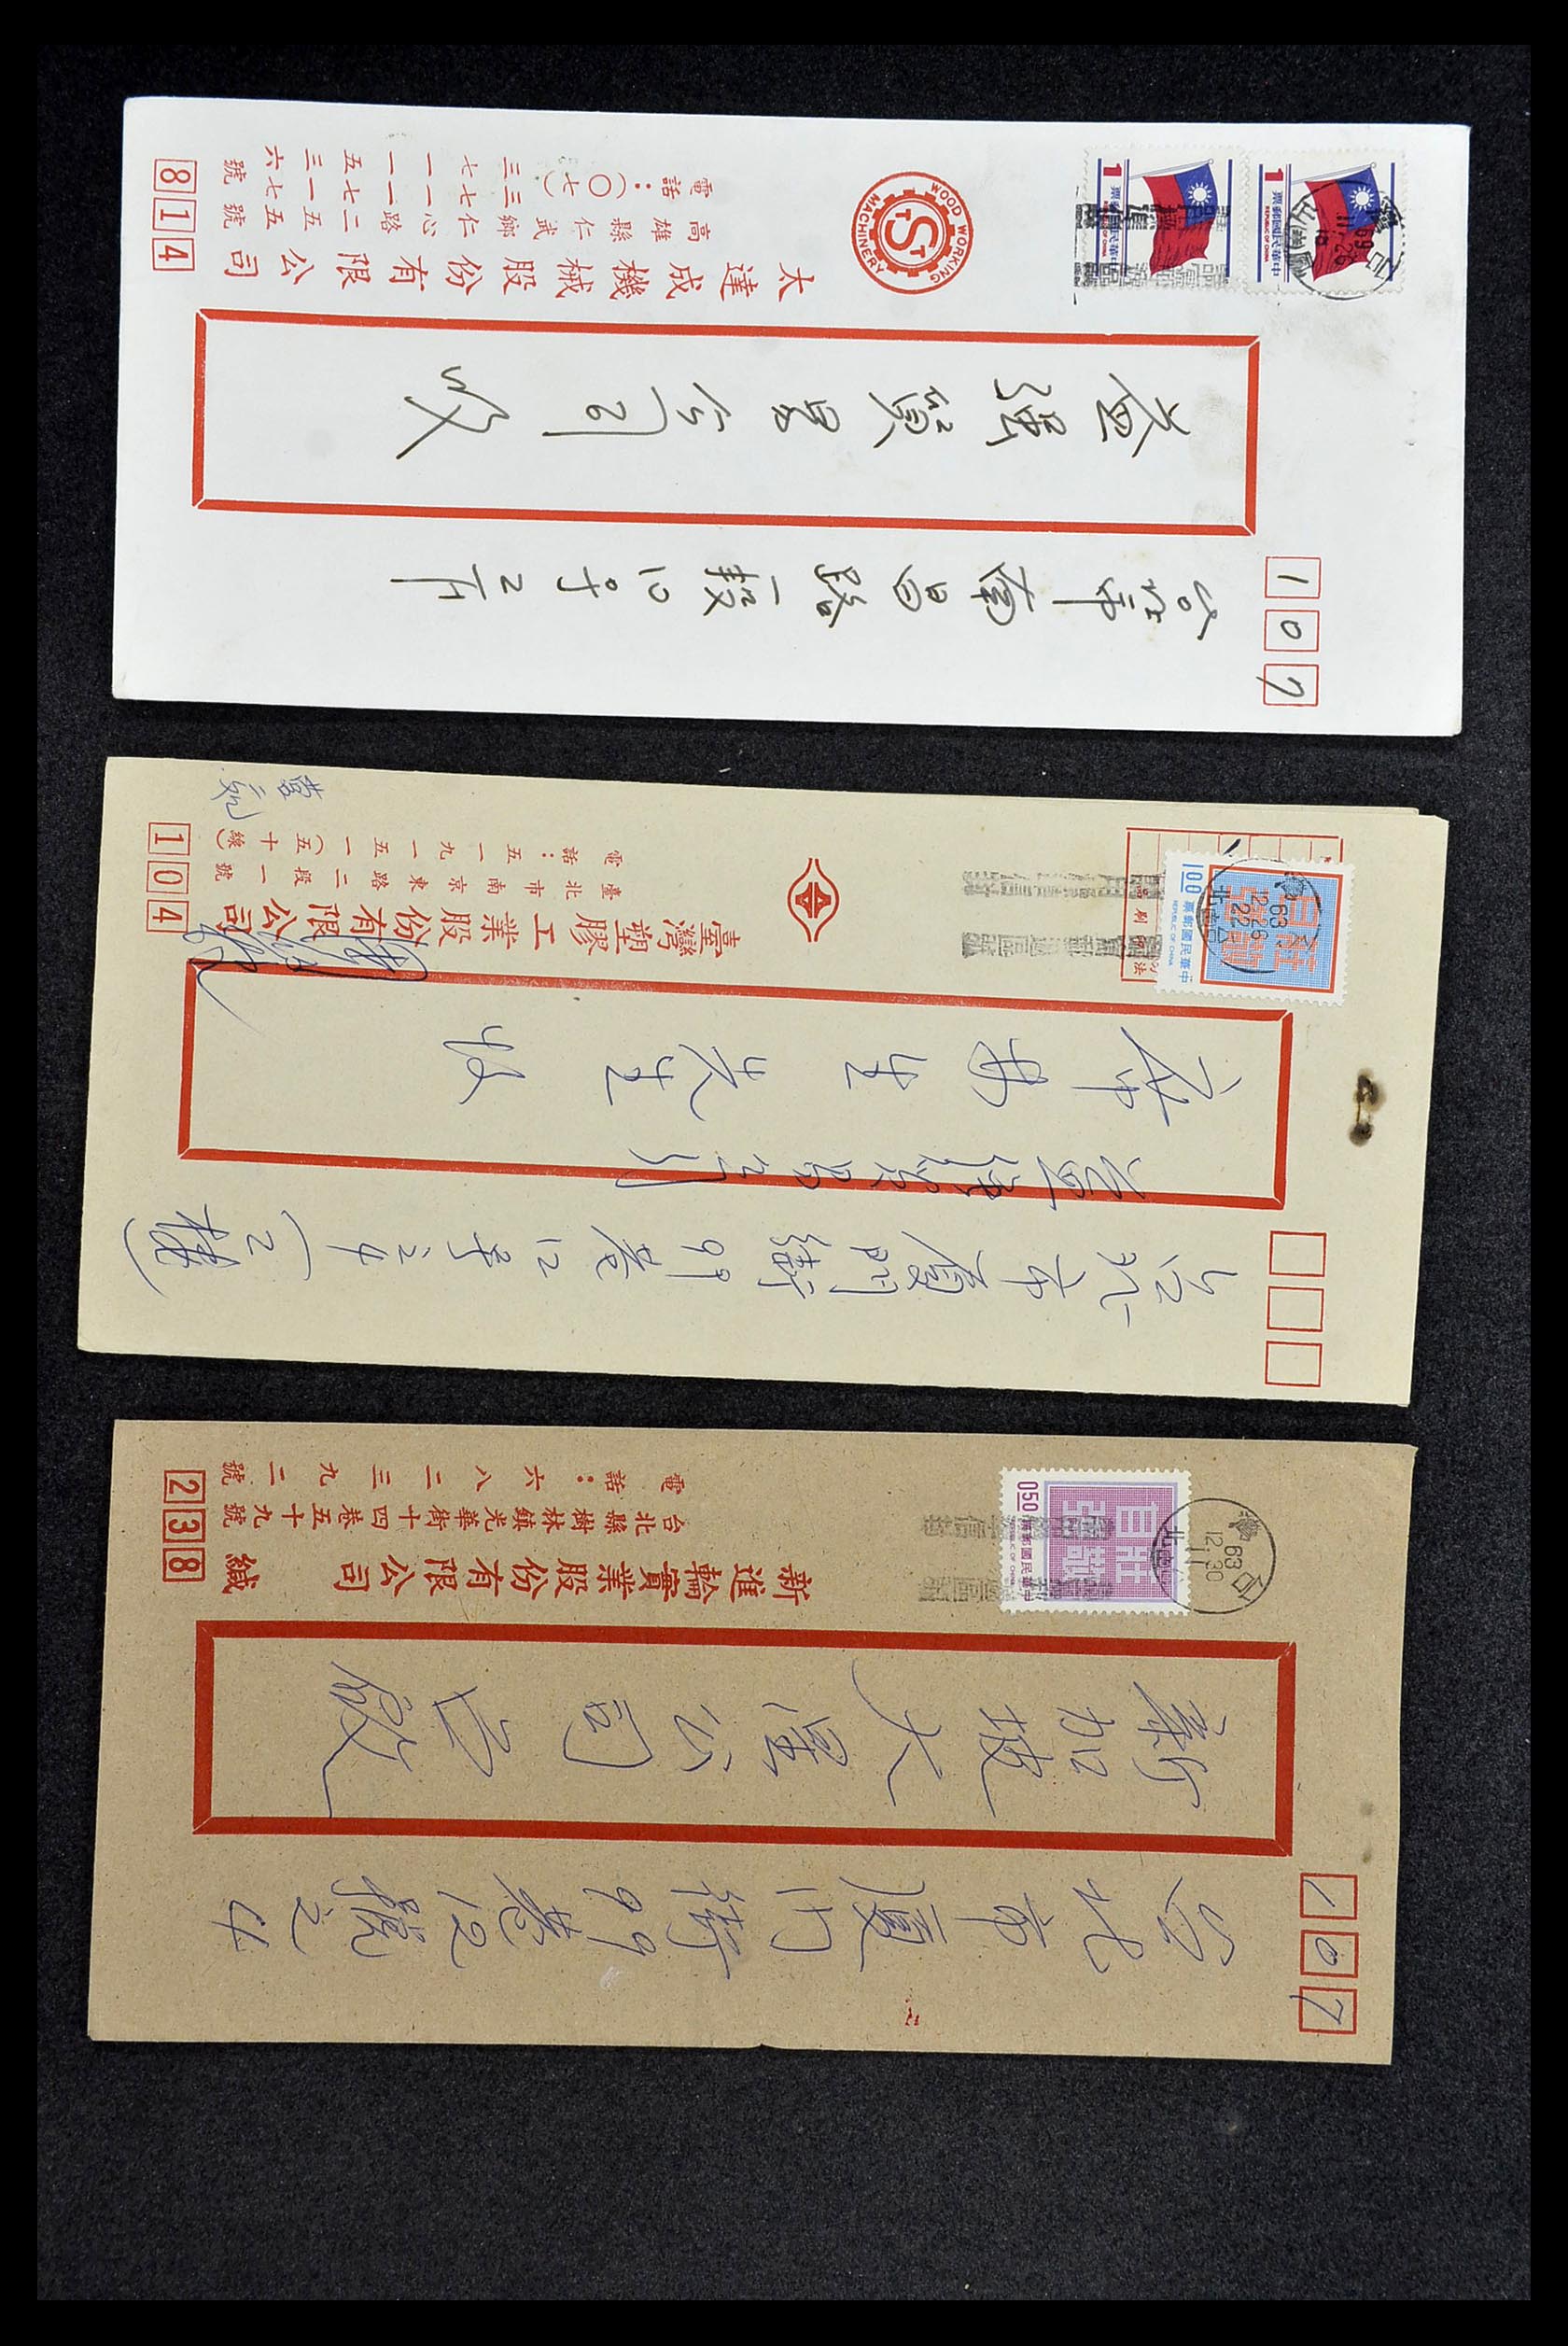 107
台北市南昌路一段10号2F
益強貿易公司 收
太達成機械股份有限公司
高雄縣仁武鄉仁心路二五五號
電話:(〇七)
814
WOOD WORKING
MACHINERY
STT
中華民國郵票
REPUBLIC OF CHINA
1
中華民國郵票
1
69
11.26
先生 收
臺灣塑膠工業股份有限公司
臺北市南京東路二段一號
電話:五一九一五一一(五十線)
104
台北市廈門街99巷12号之4
(2樓)
莊敬自強
中華民國郵票
REPUBLIC OF CHINA
1.00
63
12.26
22
107
台北市廈門街99巷12號之4
新加坡大星公司 台啟
新進輪實業股份有限公司 緘
台北縣樹林鎮光華街十四巷五十九號
電話:六八二三九二號
238
莊敬自強
中華民國郵票
REPUBLIC OF CHINA
0.50
63
12.30
11